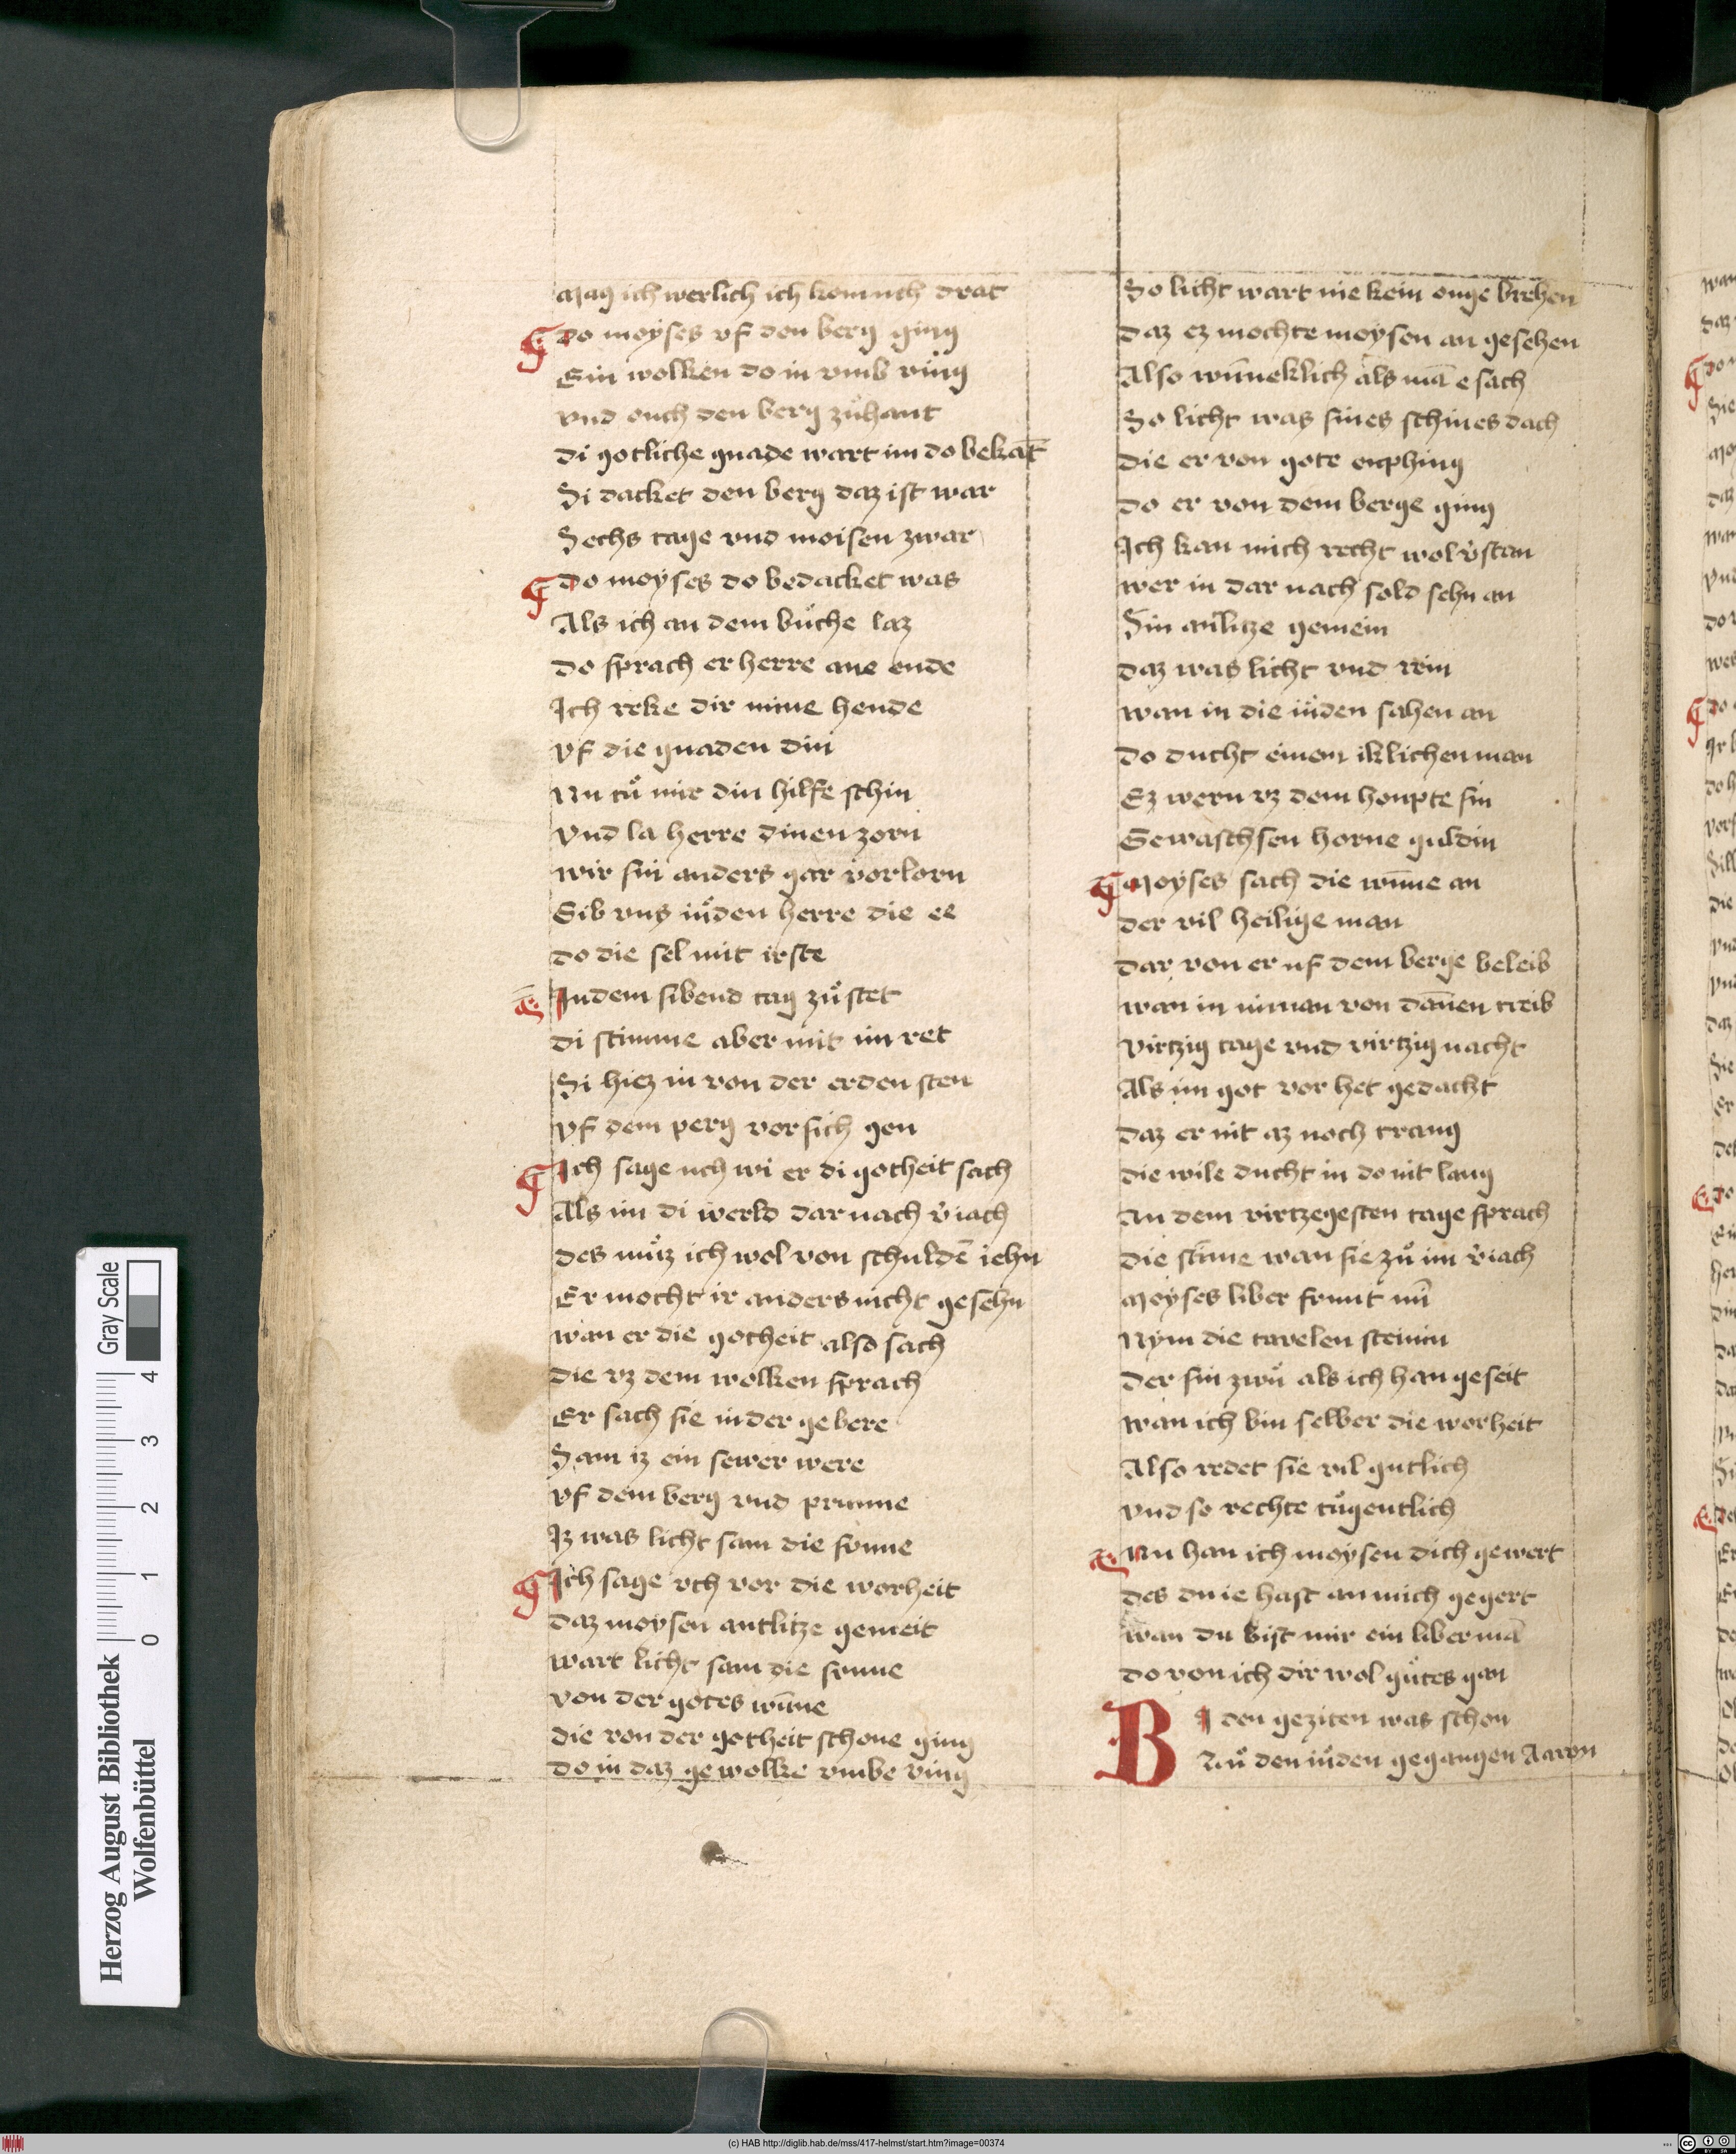 Mag ich werlich ich kom nch drat
Do moyses vf den berg ging
Ein wolken do in vmb ving
vnd ouch den berg zůhant
Di gotliche gnade wart im do bekāt
Si dacket den berg daz ist war
Sechs tage vnd moisen zwar
Do moyses do bedacket was
Als ich an dem bůche laz
Do sprach er herre ane ende
Ich reke dir mine hende
vf die gnaden din
Nu tů mir din hilfe schin
Vnd la herre dinen zorn
wir sin anders gar vorlorn
Gib vns iůden herre die ee
Do die sel mit irste
In dem sibend tag zůstet
Di stimme aber mit im ret
Si hiez in von der erden sten
vf dem perg vor sich gen
Ich sage uch wi er di gotheit sach
Als im di werld dar nach v̓iach
Des můz ich wol von schuldē iehn
Er mocht ir anders nicht gesehn
wan er die gotheit also sach
Die vz dem wolken sprach
Er sach sie in der gebere
Sam iz ein fewer were
vf dem berg vnd prunne
Iz was licht sam die sunne
Ich sage vch vor die worheit
Daz moysen antlitze gemeit
wart licht sam die sunne
von der gotes wūne
Die von der gotheit schone ging
Do in daz gewolke vmbe ving
So licht wart nie kein ouge brehen
Daz ez mochte moysen an gesehen
Also wūneklich als mā e sach
So licht was sines schines dach
Die er von gote enphing
Do er von dem berge ging
Ich kan mich recht wol v̓stan
wer in dar nach sold sehn an
Sin antlitze gemein
Daz was licht vnd rein
wan in die iůden sahen an
Do ducht einem iklichen man
Ez wern vz dem houpte sin
Gewaschsen horne guldin
Moyses sach die wūne an
Der vil heilige man
Dar von er uf dem berge beleib
wan in niman von dānen treib
Virtzig tage vnd virtzig nacht
Als im got vor het gedacht
Daz er nit az noch trang
Die wile ducht in do nit lang
An dem virtzegesten tage sprach
Die stīme wan sie zů im v̓iach
Moyses liber frunt mī
Nym die tavelen steinin
Der sin zwů als ich han geseit
wan ich bin selber die worheit
Also redet sie vil gutlich
vnd so rechte tůgentlich
Nu han ich moysen dich gewert
Des du ie hast an mich gegert
wan du bist mir ein liber mā
Do von ich dir wol gůtes gan
BI den geziten was schon
Zuů den iůden gegangen Aaron
Herzog August Bibliothek
Wolfenbüttel
0 1 2 3 4
Gray Scale
(c) HAB http://diglib.hab.de/mss/417-helmst/start.htm?image=00374